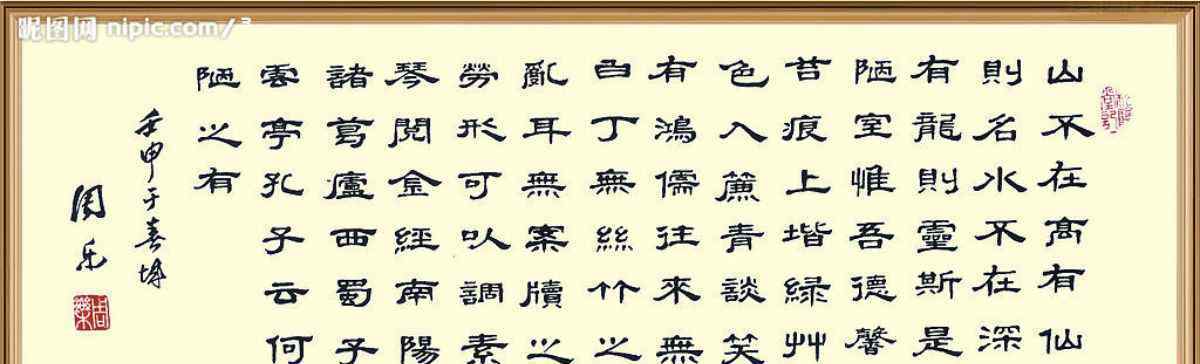 昵图网 nipic.com/³
山不在高有仙
則名水不在深
有龍則靈斯是
陋室惟吾德馨
苔痕上堦緑艸
色入簾青談笑
有鴻儒往來無
白丁無絲竹之
亂耳無案牘之
勞形可以調素
琴閲金經南陽
諸葛廬西蜀子
雲亭孔子云何
陋之有
壬申于春城
周乐
周樂